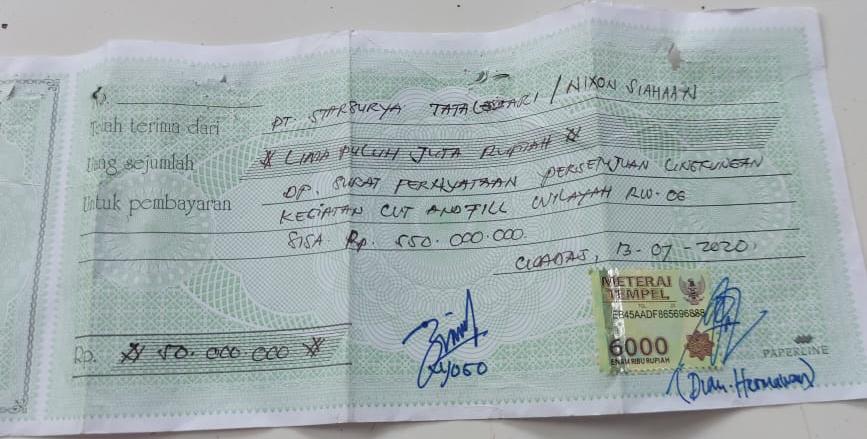 No.
Telah terima dari PT. STARSURYA TATALESARI / NIXON SIAHAAN
Uang sejumlah # LIMA PULUH JUTA RUPIAH #
Untuk pembayaran DP. SURAT PERNYATAAN PERSETUJUAN LINGKUNGAN
KEGIATAN CUT AND FILL WILAYAH RW. 06
SISA Rp. 550.000.000.
13-07-2020
METERAI
TEMPEL
EB45AADF865696888
6000
ENAM RIBU RUPIAH
Rp. # 50.000.000 #
PAPERLINE
(Dian. Hermawan)